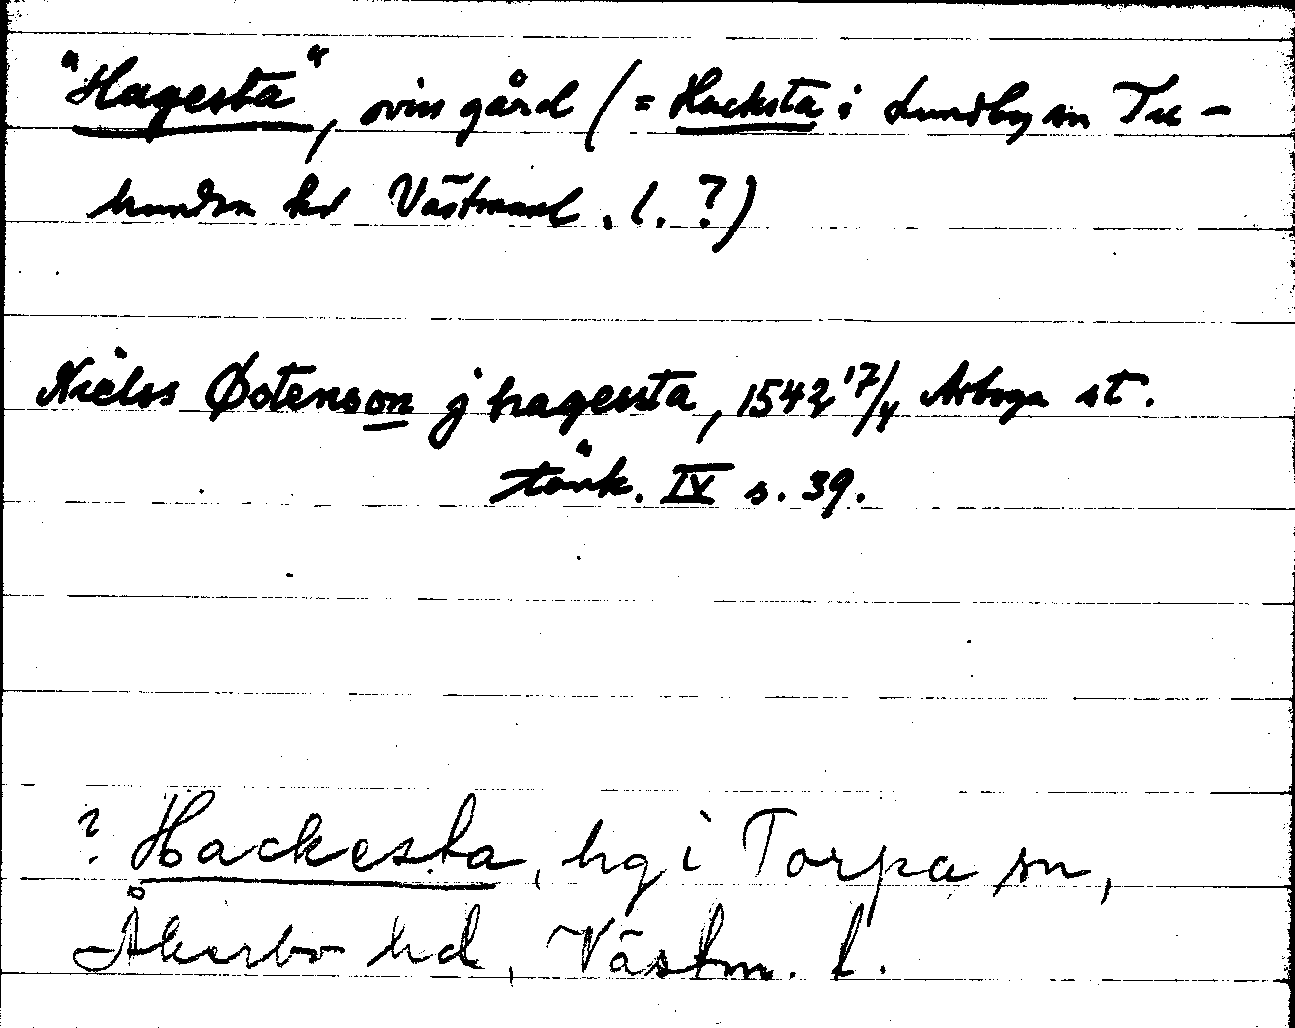 "Hagesta", oviss gård (= Hacksta i Lundby sn Tu-
hundra hd Västmanl. l. ?)
Nielss Østenson j hagesta, 1542 17/4 Arboga st.
tänk. IV s. 39.
? Hackesta, hg i Torpa sn,
Åkerbo hd, Västm. l.